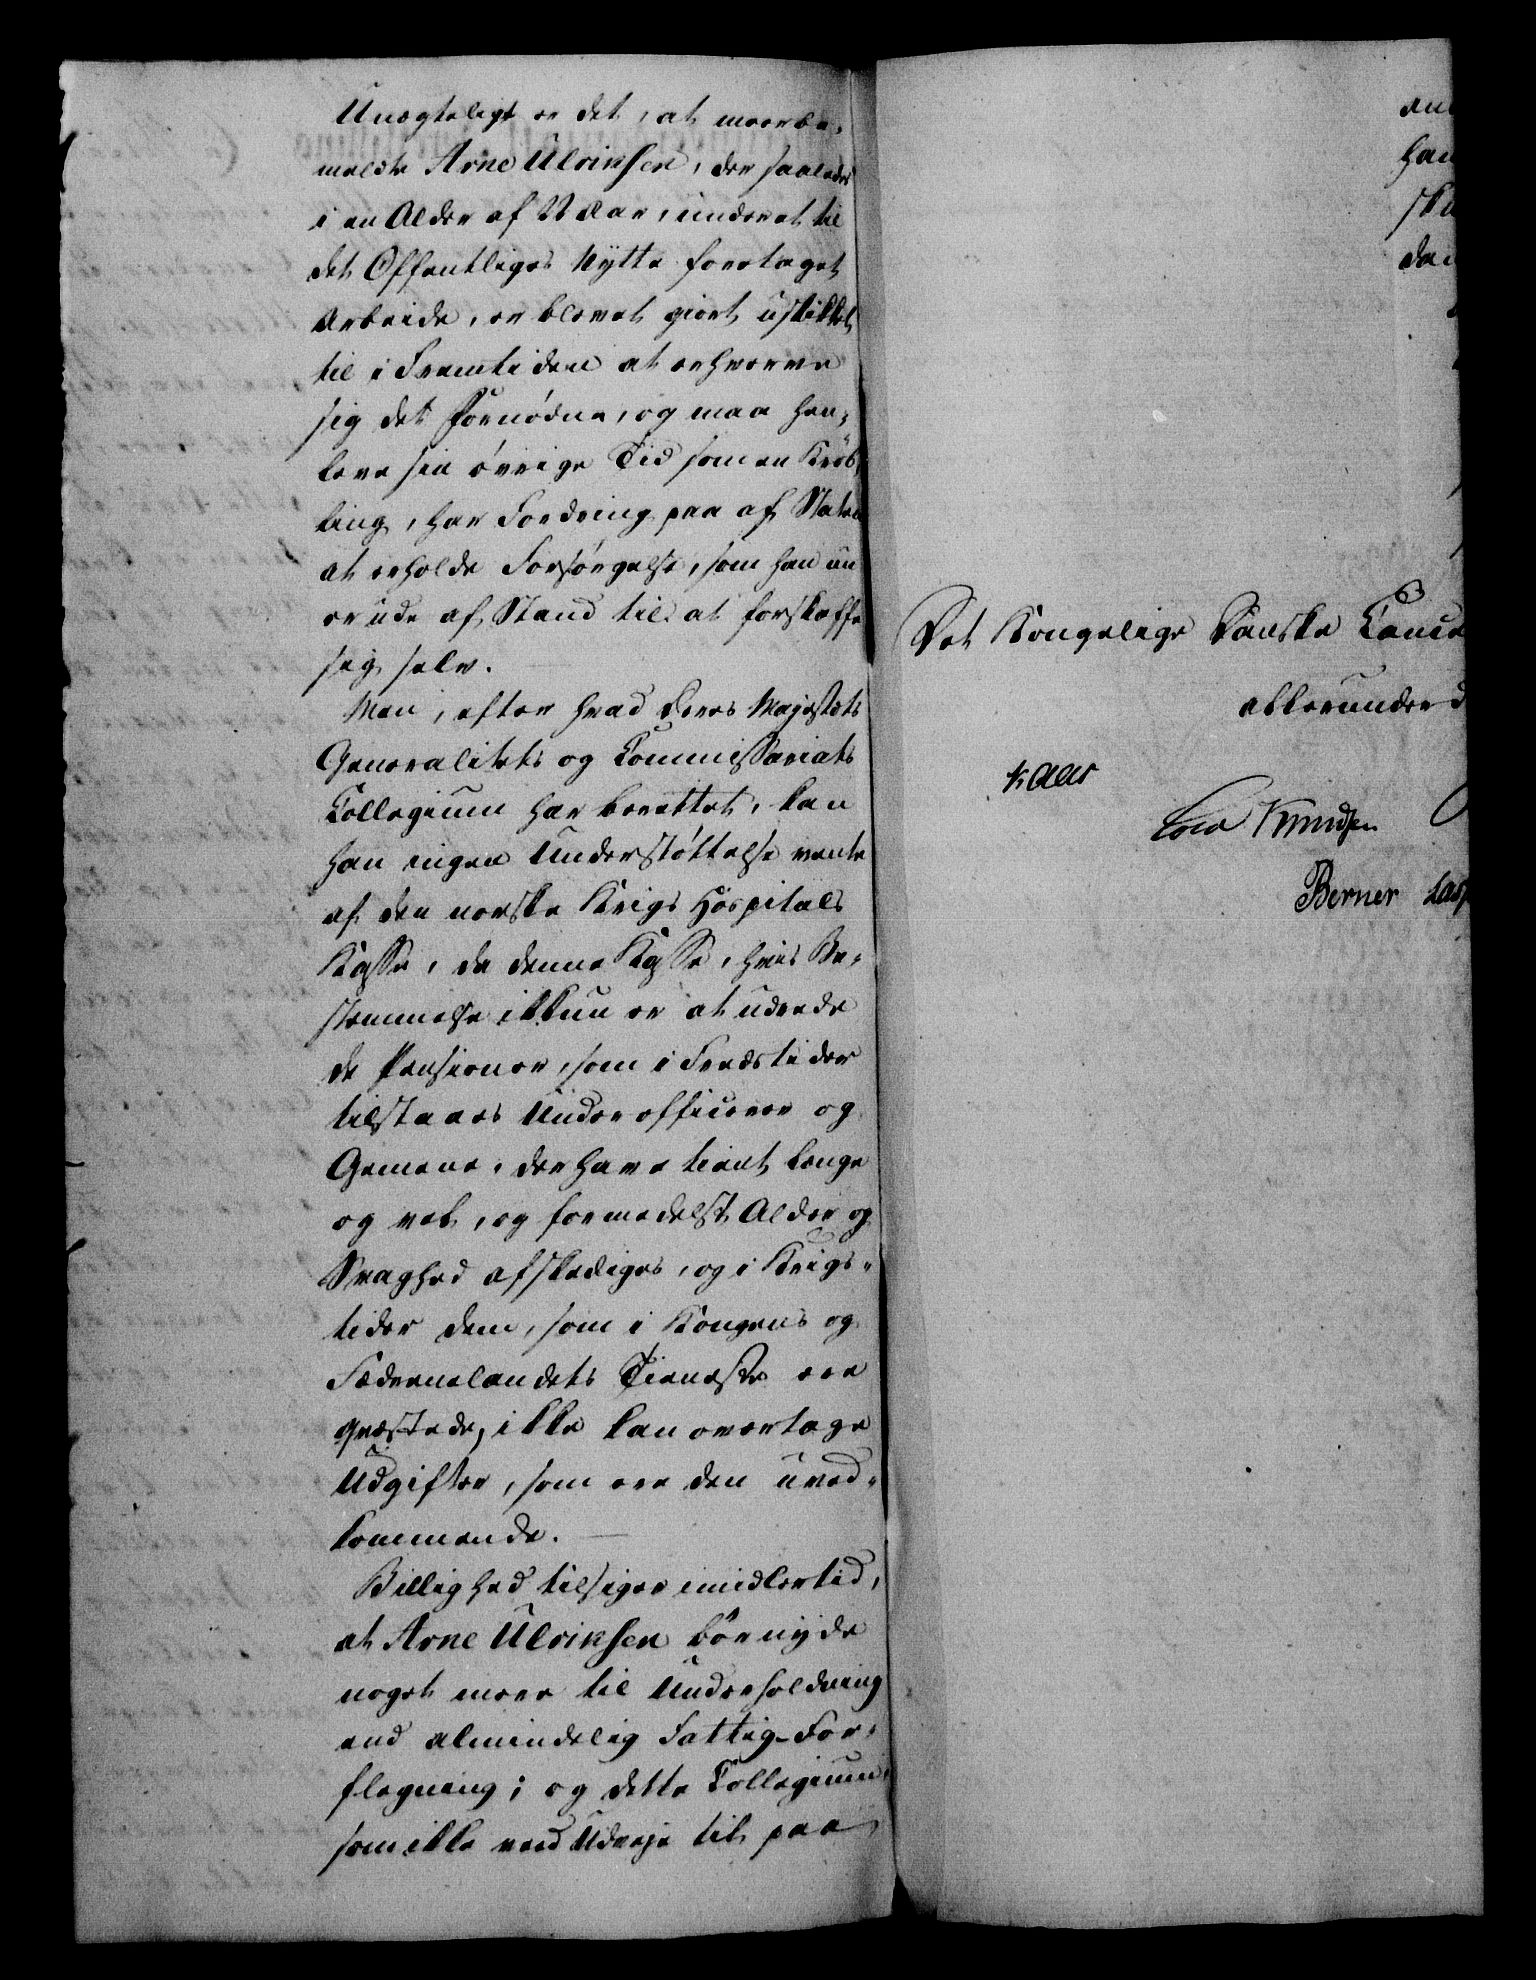 Unægteligt er det, at meerbe-
meldte Arne Ulriksen, der saaledes
i en Alder af 22 Aar, under et til
det Offentliges Nytte foretaget
Arbeide, er blevet giort uskikket
til i Fremtiden at erhverve
sig det Fornødne, og maa hen-
leve sin øvrige Tid som en Krøb-
ling, har Fordring paa af Staten
at erholde Forsørgelse, som han nu
er ude af Stand til at forskaffe
sig selv.
Men, efter hvad Deres Majestæts
Generalitets og Commissariats
Collegium har berettet, kan
han ingen Understøttelse vente
af den norske Krigs Hospitals
Kasse, da denne Kasse, hvis Be-
stemmelse ikkun er at udrede
de Pensioner, som i Fredstider
tilstaaes Underofficerer og
Gemene, der have tient længe
og vel, og formedelst Alder og
Svaghed afskediges, og i Krigs-
tider dem, som i Kongens og
Fædrenelandets Tieneste ere
qvæstede, ikke kan overtage
Udgifter, som ere den uved-
kommende.
Billighed tilsiger imidlertid,
at Arne Ulriksen bør nyde
noget meer til Underholdning
end almindelig Fattig-For-
flegning; og dette Collegium,
som ikke veed Udveje til paa
han
Det Kongelige Danske Cance
allerunderd
Kaas
Knudsen
Berner Las